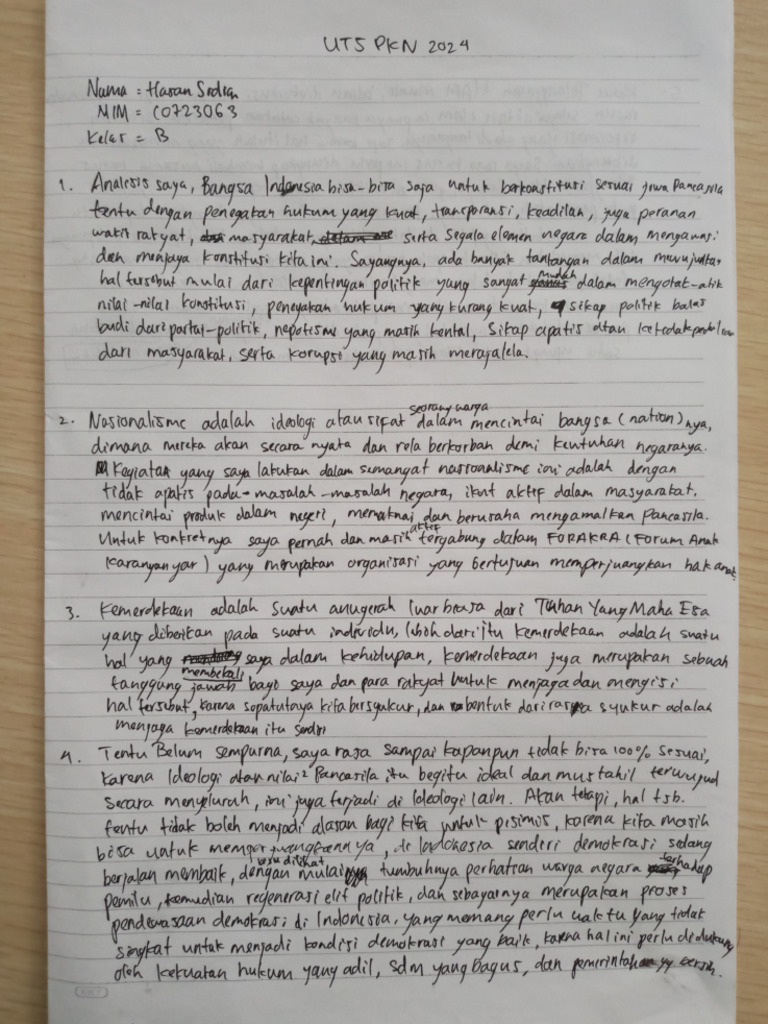 UTS PKN 2024
Nama = Hasan Sodiq
NIM = C0723063
Kelas = B
1. Analisis saya, Bangsa Indonesia bisa-bisa saja untuk berkonstitusi sesuai jiwa Pancasila
tentu dengan penegakan hukum yang kuat, transparansi, keadilan, juga peranan
wakil rakyat, masyarakat, serta segala elemen negara dalam mengawasi
dan menjaga konstitusi kita ini. Sayangnya, ada banyak tantangan dalam mewujudkan
hal tersebut mulai dari kepentingan politik yang sangat mudah dalam mengotak-atik
nilai-nilai konstitusi, penegakan hukum yang kurang kuat, sikap politik balas
budi dari partai-politik, nepotisme yang masih kental, sikap apatis atau ketidakpedulian
dari masyarakat, serta korupsi yang masih merajalela.
2. Nasionalisme adalah ideologi atau sifat seorang warga dalam mencintai bangsa (nation) nya,
dimana mereka akan secara nyata dan rela berkorban demi keutuhan negaranya.
Kegiatan yang saya lakukan dalam semangat nasionalisme ini adalah dengan
tidak apatis pada-masalah-masalah negara, ikut aktif dalam masyarakat,
mencintai produk dalam negeri, memaknai dan berusaha mengamalkan Pancasila.
Untuk konkretnya saya pernah dan masih aktif tergabung dalam FORAKRA (Forum Anak
Karanganyar) yang merupakan organisasi yang bertujuan memperjuangkan hak anak.
3. Kemerdekaan adalah suatu anugerah luar biasa dari Tuhan Yang Maha Esa
yang diberikan pada suatu individu, lebih dari itu kemerdekaan adalah suatu
hal yang membekali saya dalam kehidupan, kemerdekaan juga merupakan sebuah
tanggung jawab bagi saya dan para rakyat untuk menjaga dan mengisi
hal tersebut, karena sepatutnya kita bersyukur, dan bentuk dari rasa syukur adalah
menjaga kemerdekaan itu sendiri
4. Tentu Belum sempurna, saya rasa sampai kapanpun tidak bisa 100% sesuai,
karena Ideologi atau nilai² Pancasila itu begitu ideal dan mustahil terwujud
secara menyeluruh, ini juga terjadi di Ideologi lain. Akan tetapi, hal tsb.
tentu tidak boleh menjadi alasan bagi kita untuk pisimis, karena kita masih
bisa untuk memperjuangkannya, di Indonesia sendiri demokrasi sedang
berjalan membaik, bisa dilihat dengan mulai tumbuhnya perhatian warga negara terhadap
pemilu, kemudian regenerasi elit politik, dan sebagainya merupakan proses
pendewasaan demokrasi di Indonesia, yang memang perlu waktu yang tidak
singkat untuk menjadi kondisi demokrasi yang baik, karena hal ini perlu didukung
oleh kekuatan hukum yang adil, sdm yang bagus, dan pemerintahan yg bersih.